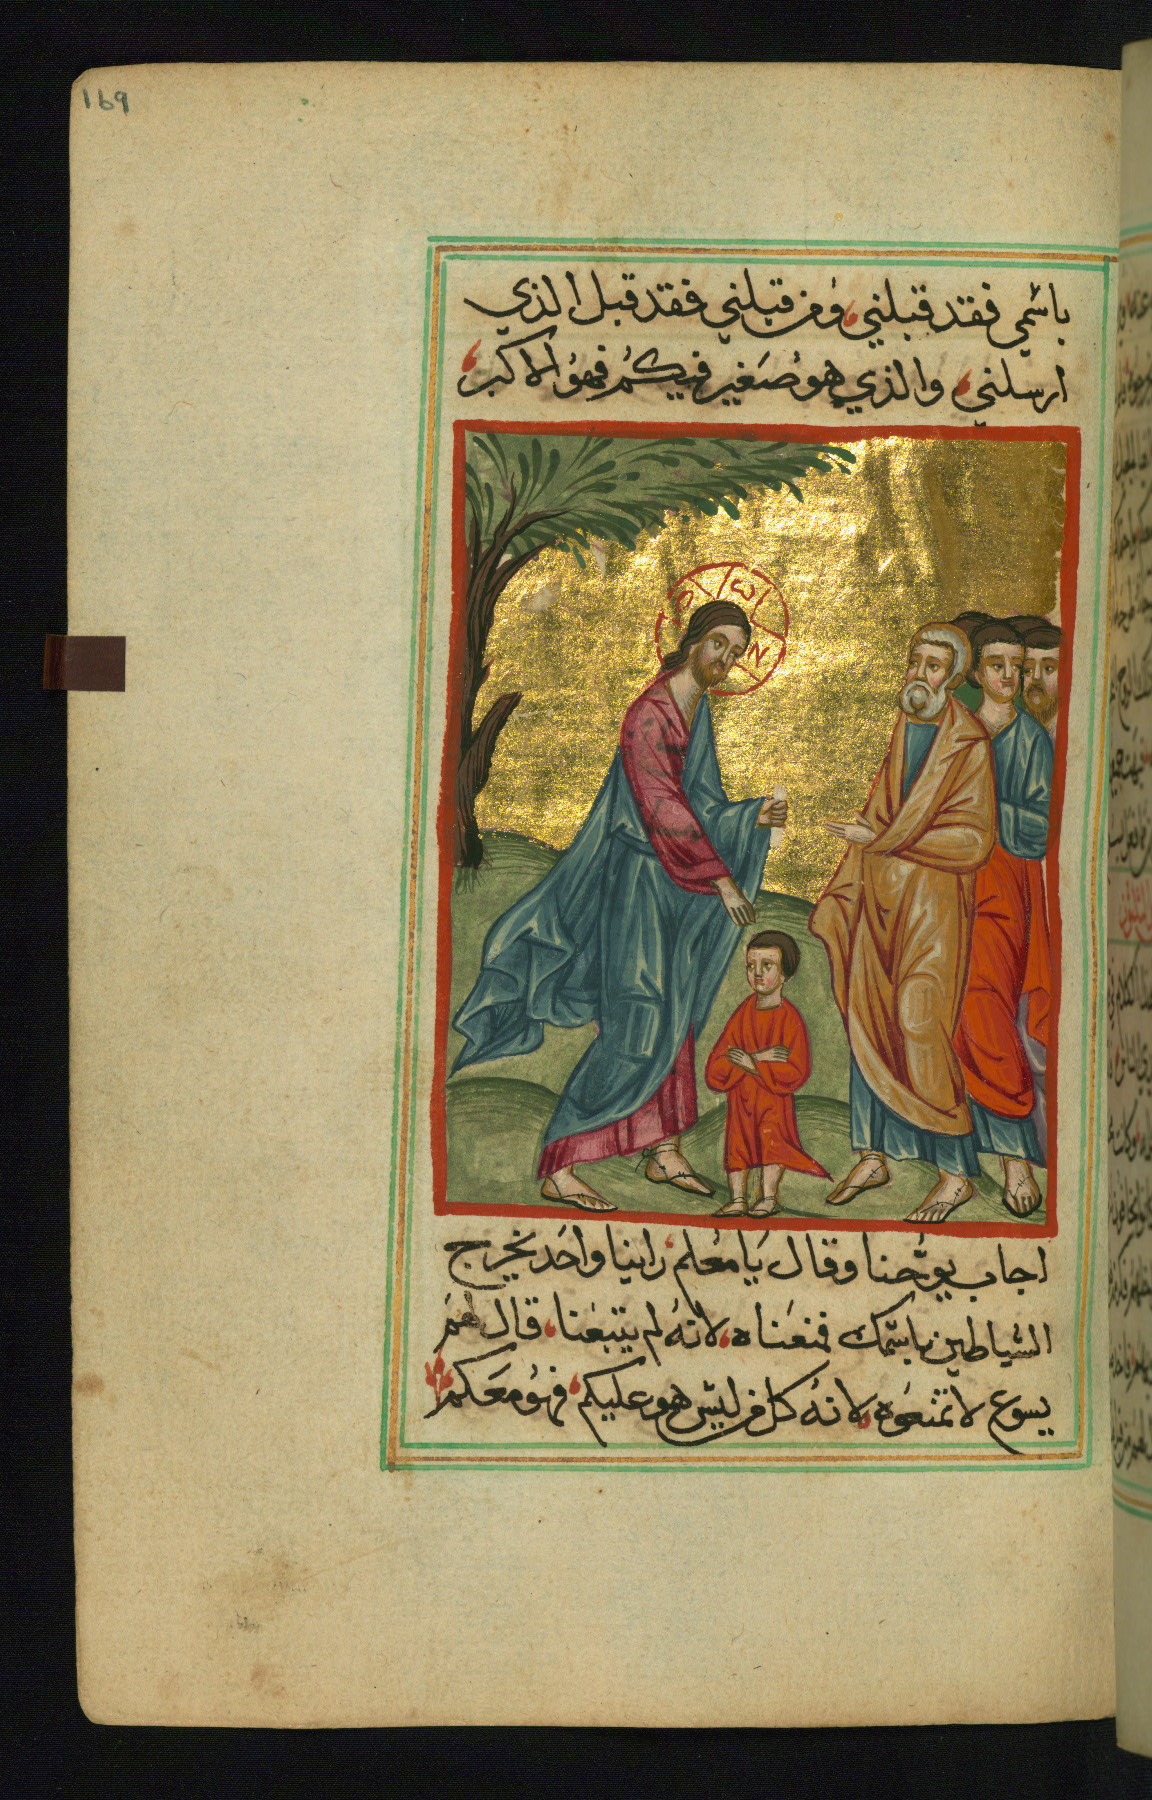 169
باسمي فقد قبلني، ومن قبلني فقد قبل الذي
ارسلني، والذي هو صغير فيكم فهو الاكبر
ω Ν
اجاب يوحنا وقال يا معلم راينا واحد يخرج
الشياطين باسمك فمنعناه، لانه لم يتبعنا، قال لهم
يسوع لا تمنعوه، لانه كل من ليس هو عليكم، فهو معكم